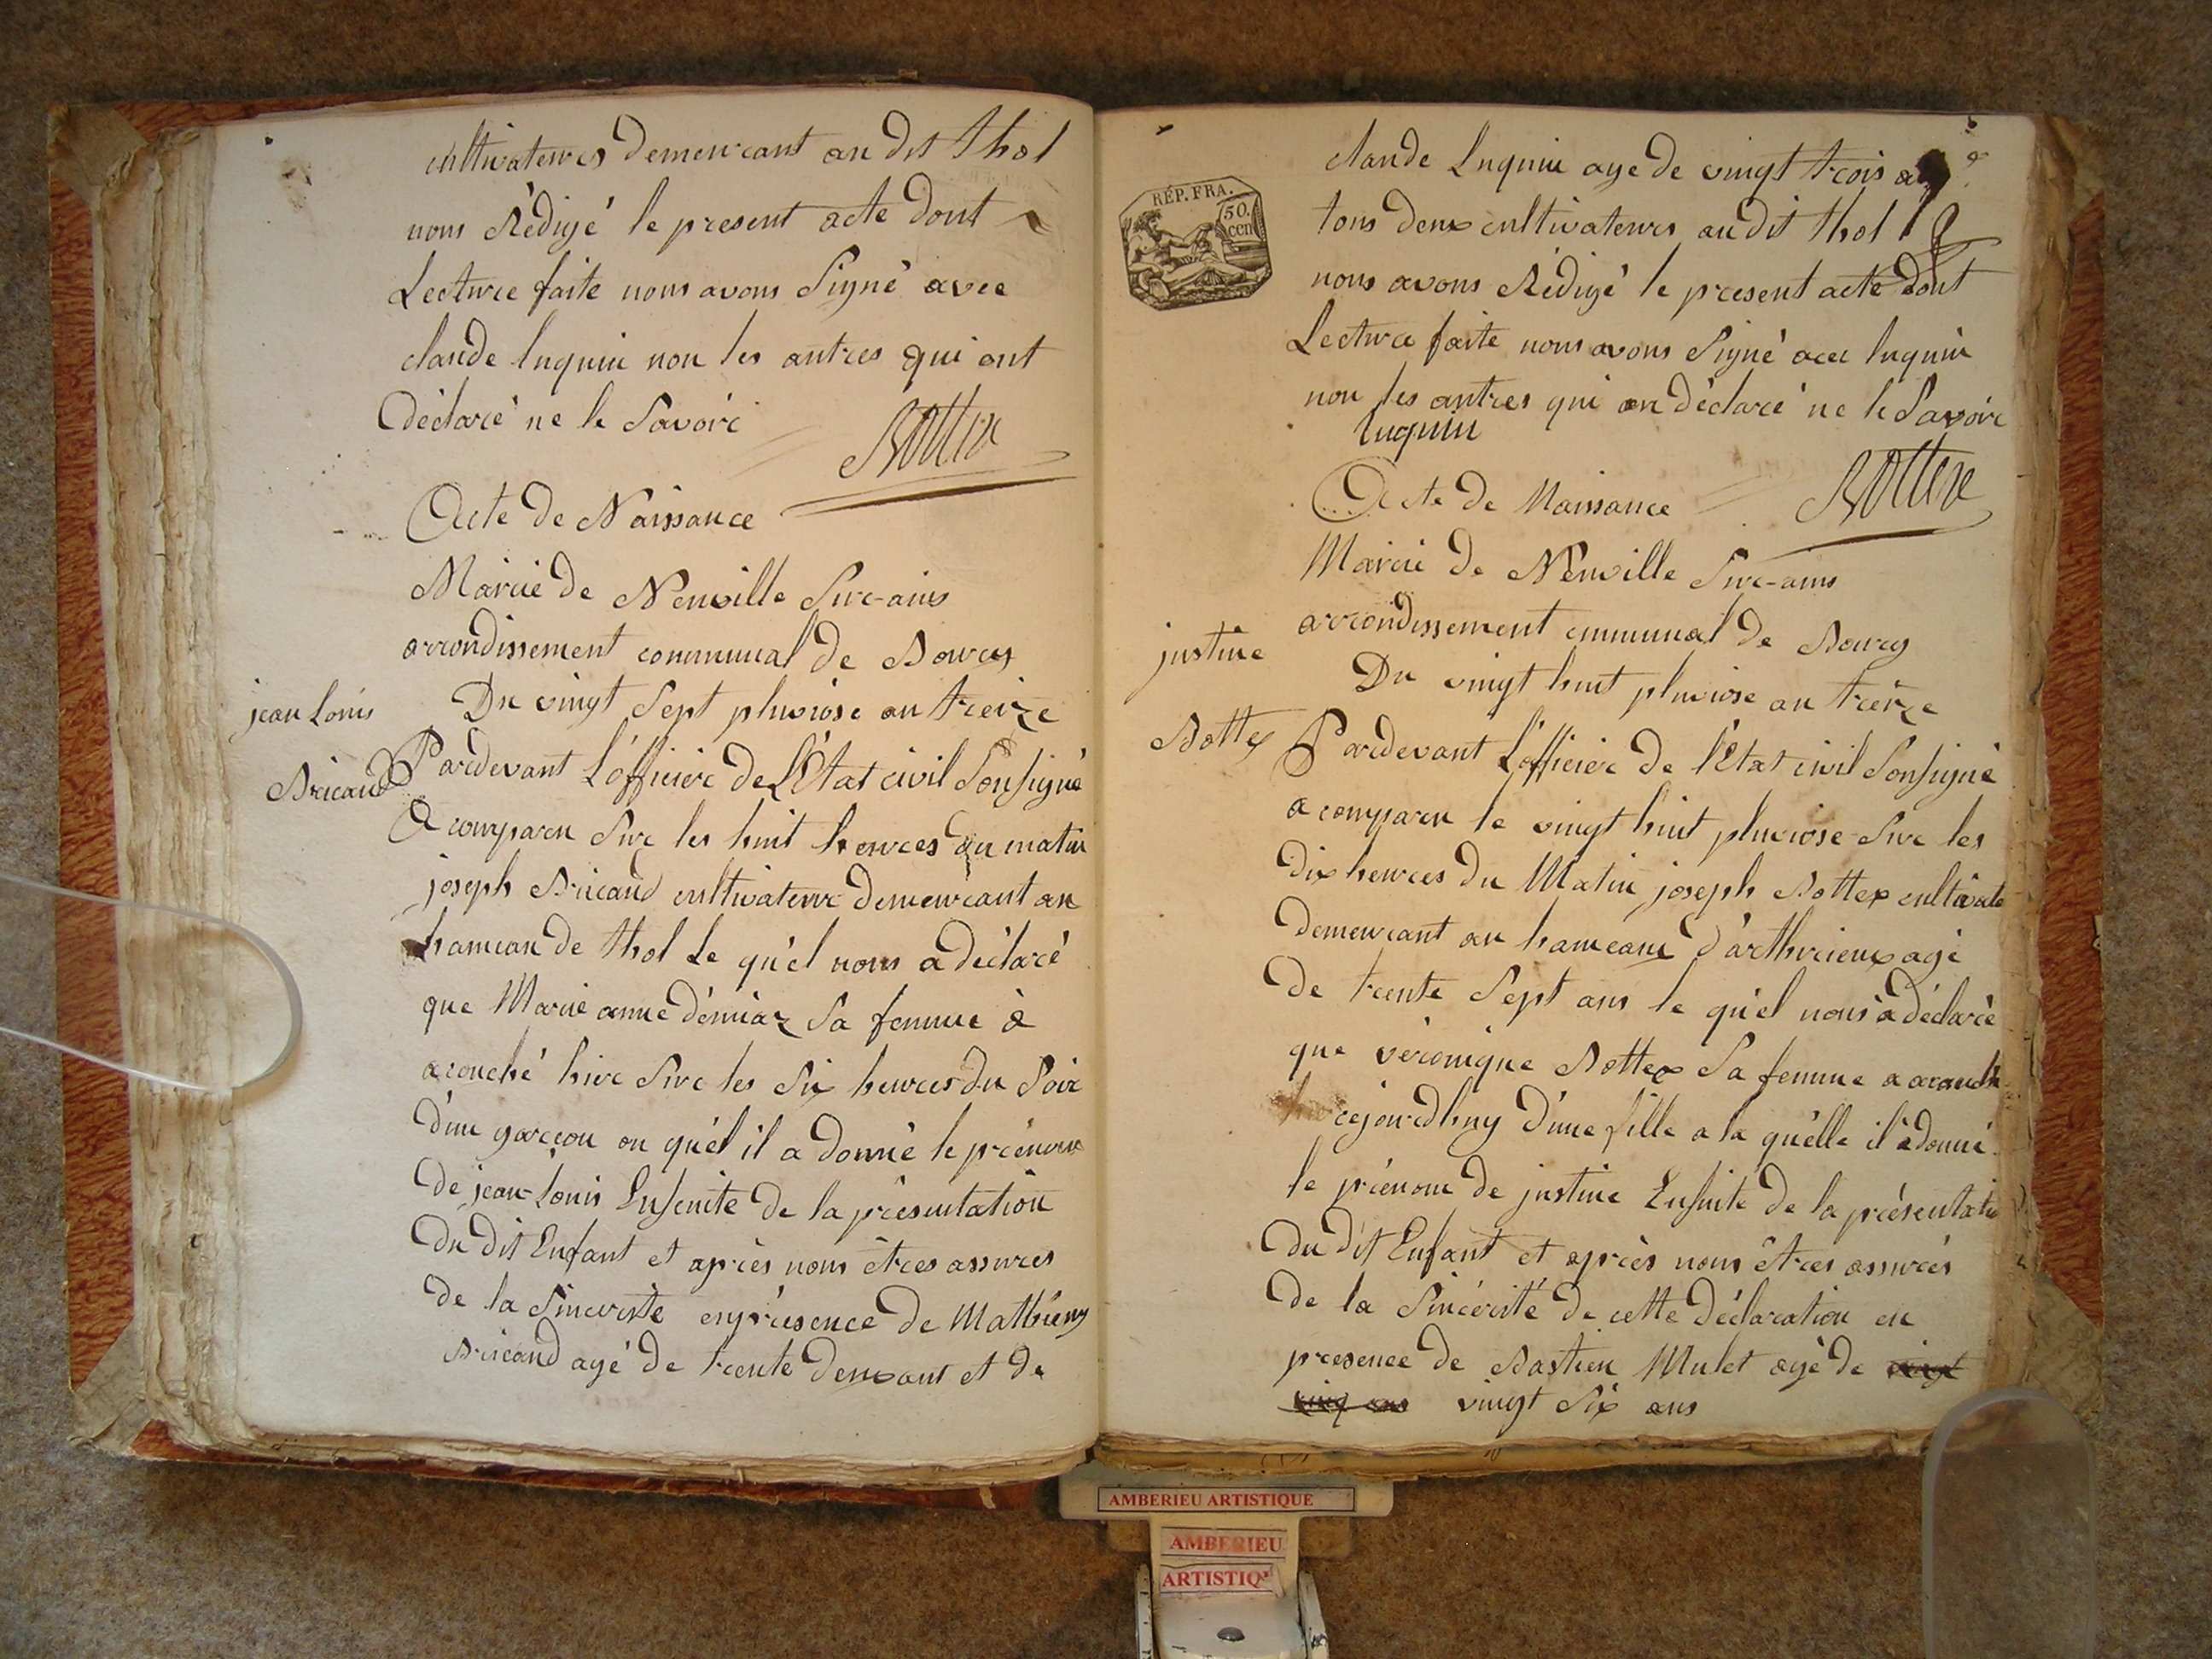 cultivateurs demeurant au dit thol
nous Rédigé le present acte dont
Lecture faite nous avons Signé avec
claude luquin non les autres qui ont
déclaré ne le Savoir
Acte de Naissance
Mairie de Neuville Sur-ains
arrondissement communal de Bourg
jean Louis
Bricaud
Du vingt Sept pluviose an treize
Pardevant L'officier de L'Etat civil Sousigné
A comparu Sur les huit heures du matin
joseph Bricaud cultivateur demeurant au
hameau de thol Le quel nous a déclaré
que Marie anne démiaz Sa femme à
acouché hier Sur les Six heures du Soir
d'un garçon au quel il a donné le prénom
de jean-Louis Ensuite de la présentation
du dit Enfant et après nous êtres assures
de la Sincerité en présence de Mathieu
Bricaud agé de trente deux ant et de
RÉP. FRA.
50.
cen
claude Luquin age de vingt trois
tous deux cultivateurs au dit thol
nous avons Rédigé le present acte dont
Lecture faite nous avons Signé avec luquin
non les autres qui on déclaré ne le Savoir
luquin
Acte de Naissance
Mairie de Neuville Sur-ains
arrondissement communal de Bourg
justine
Bottex
Du vingt huit pluviose an treize
Pardevant L'officier de l'Etat civil Sousigné
a comparu le vingt huit pluviose Sur les
dix heures du Matin joseph Bottex cultivate
demeurant au hameau d'arthurieux agé
de trente Sept ans le quel nous a déclaré
que véronique Bottex Sa femme a acouché
cejourdhuy d'une fille a la quelle il a donné
le prénom de justine Ensuite de la présentatio
du dit Enfant et après nous êtres assurés
de la Sincérité de cette déclaration en
presence de Bastien Mulet agé de vingt
cinq ans vingt Six ans
AMBERIEU ARTISTIQUE
AMBERIEU
ARTISTIQ